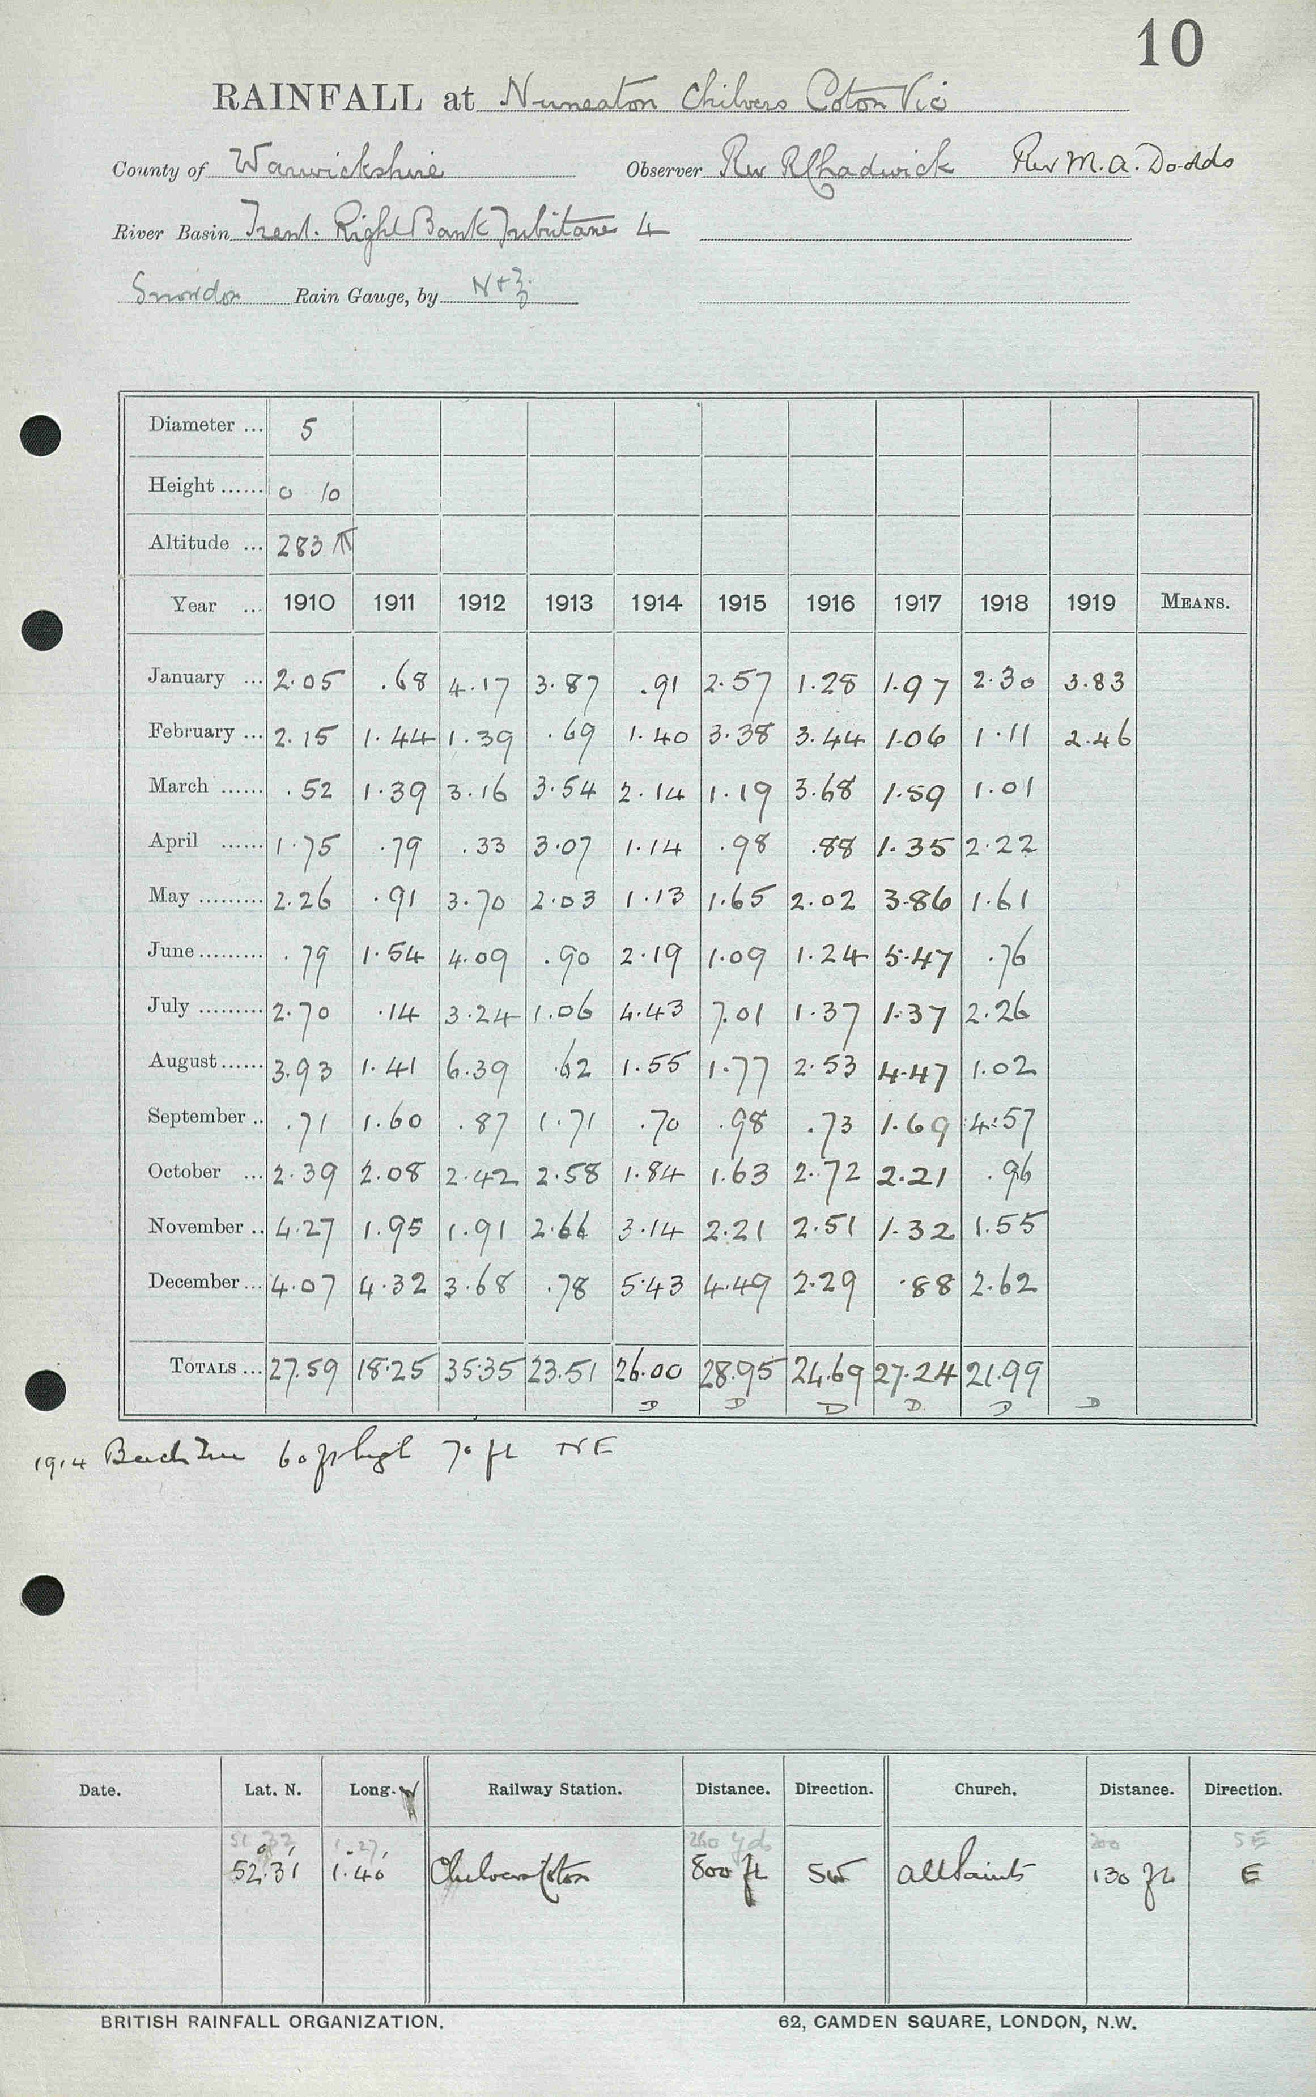 10
RAINFALL at Nuneaton Chilvers Coton Vic
County of Warwickshire Observer Rev R Chadwick Rev M.A. Dodds
River Basin Trent. Right Bank Tributaries 4
Snowdon Rain Gauge, by N+Z
Diameter ... 5
Height ...... 0 10
Altitude ... 283
Year ... 1910 1911 1912 1913 1914 1915 1916 1917 1918 1919 MEANS.
January ... 2.05 .68 4.17 3.87 .91 2.57 1.28 1.97 2.30 3.83
February ... 2.15 1.44 1.39 .69 1.40 3.38 3.44 1.06 1.11 2.46
March ...... .52 1.39 3.16 3.54 2.14 1.19 3.68 1.59 1.01
April ...... 1.75 .79 .33 3.07 1.14 .98 .88 1.35 2.22
May ......... 2.26 .91 3.70 2.03 1.13 1.65 2.02 3.86 1.61
June ......... .79 1.54 4.09 .90 2.19 1.09 1.24 5.47 .76
July ......... 2.70 .14 3.24 1.06 4.43 7.01 1.37 1.37 2.26
August ...... 3.93 1.41 6.39 .62 1.55 1.77 2.53 4.47 1.02
September .. .71 1.60 .87 1.71 .70 .98 .73 1.69 4.57
October ... 2.39 2.08 2.42 2.58 1.84 1.63 2.72 2.21 .96
November .. 4.27 1.95 1.91 2.66 3.14 2.21 2.51 1.32 1.55
December ... 4.07 4.32 3.68 .78 5.43 4.49 2.29 .88 2.62
TOTALS ... 27.59 18.25 35.35 23.51 26.00 28.95 24.69 27.24 21.99
D D D D D D
1914 Beech Tree 60 ft high 70 ft NE
Date. Lat. N. Long. W Railway Station. Distance. Direction. Church. Distance. Direction.
51 32 1.27 260 yds 200 SE
52.31 1.40 Chilvers Coton 800 ft SW All Saints 130 ft E
BRITISH RAINFALL ORGANIZATION. 62, CAMDEN SQUARE, LONDON, N.W.